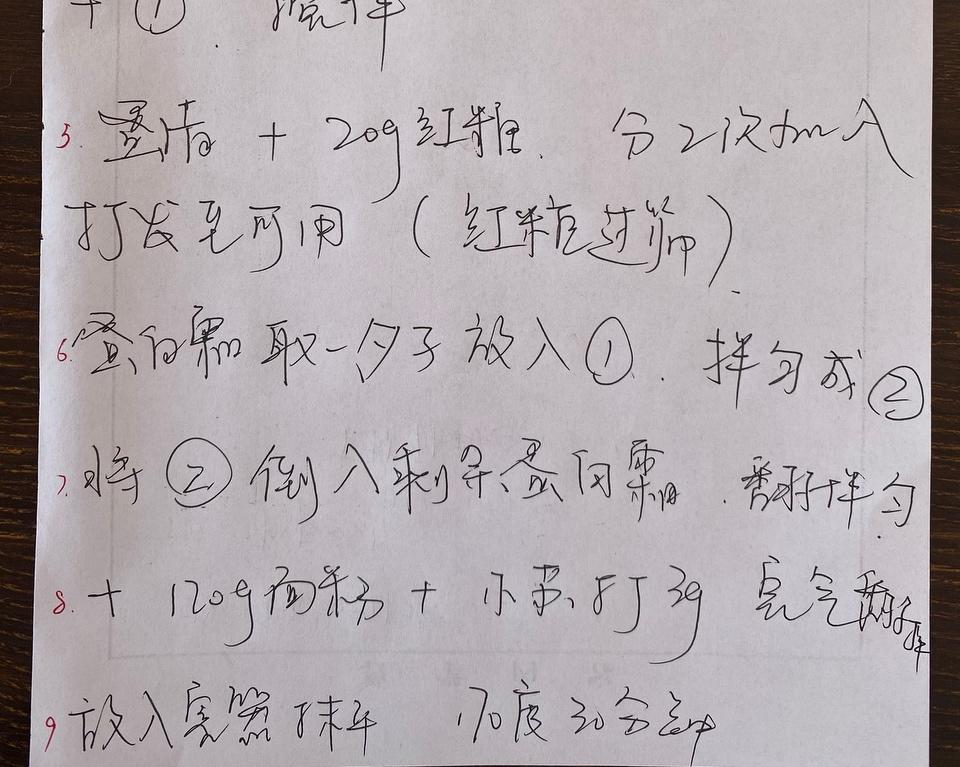 + ① . 搅拌
5. 蛋清 + 20g 红糖. 分2次加入
打发至可用 (红糖过筛).
6. 蛋白霜 取一夕子 放入①. 拌匀成②
7. 将②倒入剩余蛋白霜. 翻拌匀.
8. + 120g面粉 + 小苏打3g 完全翻拌
9 放入容器抹平 170度30分钟